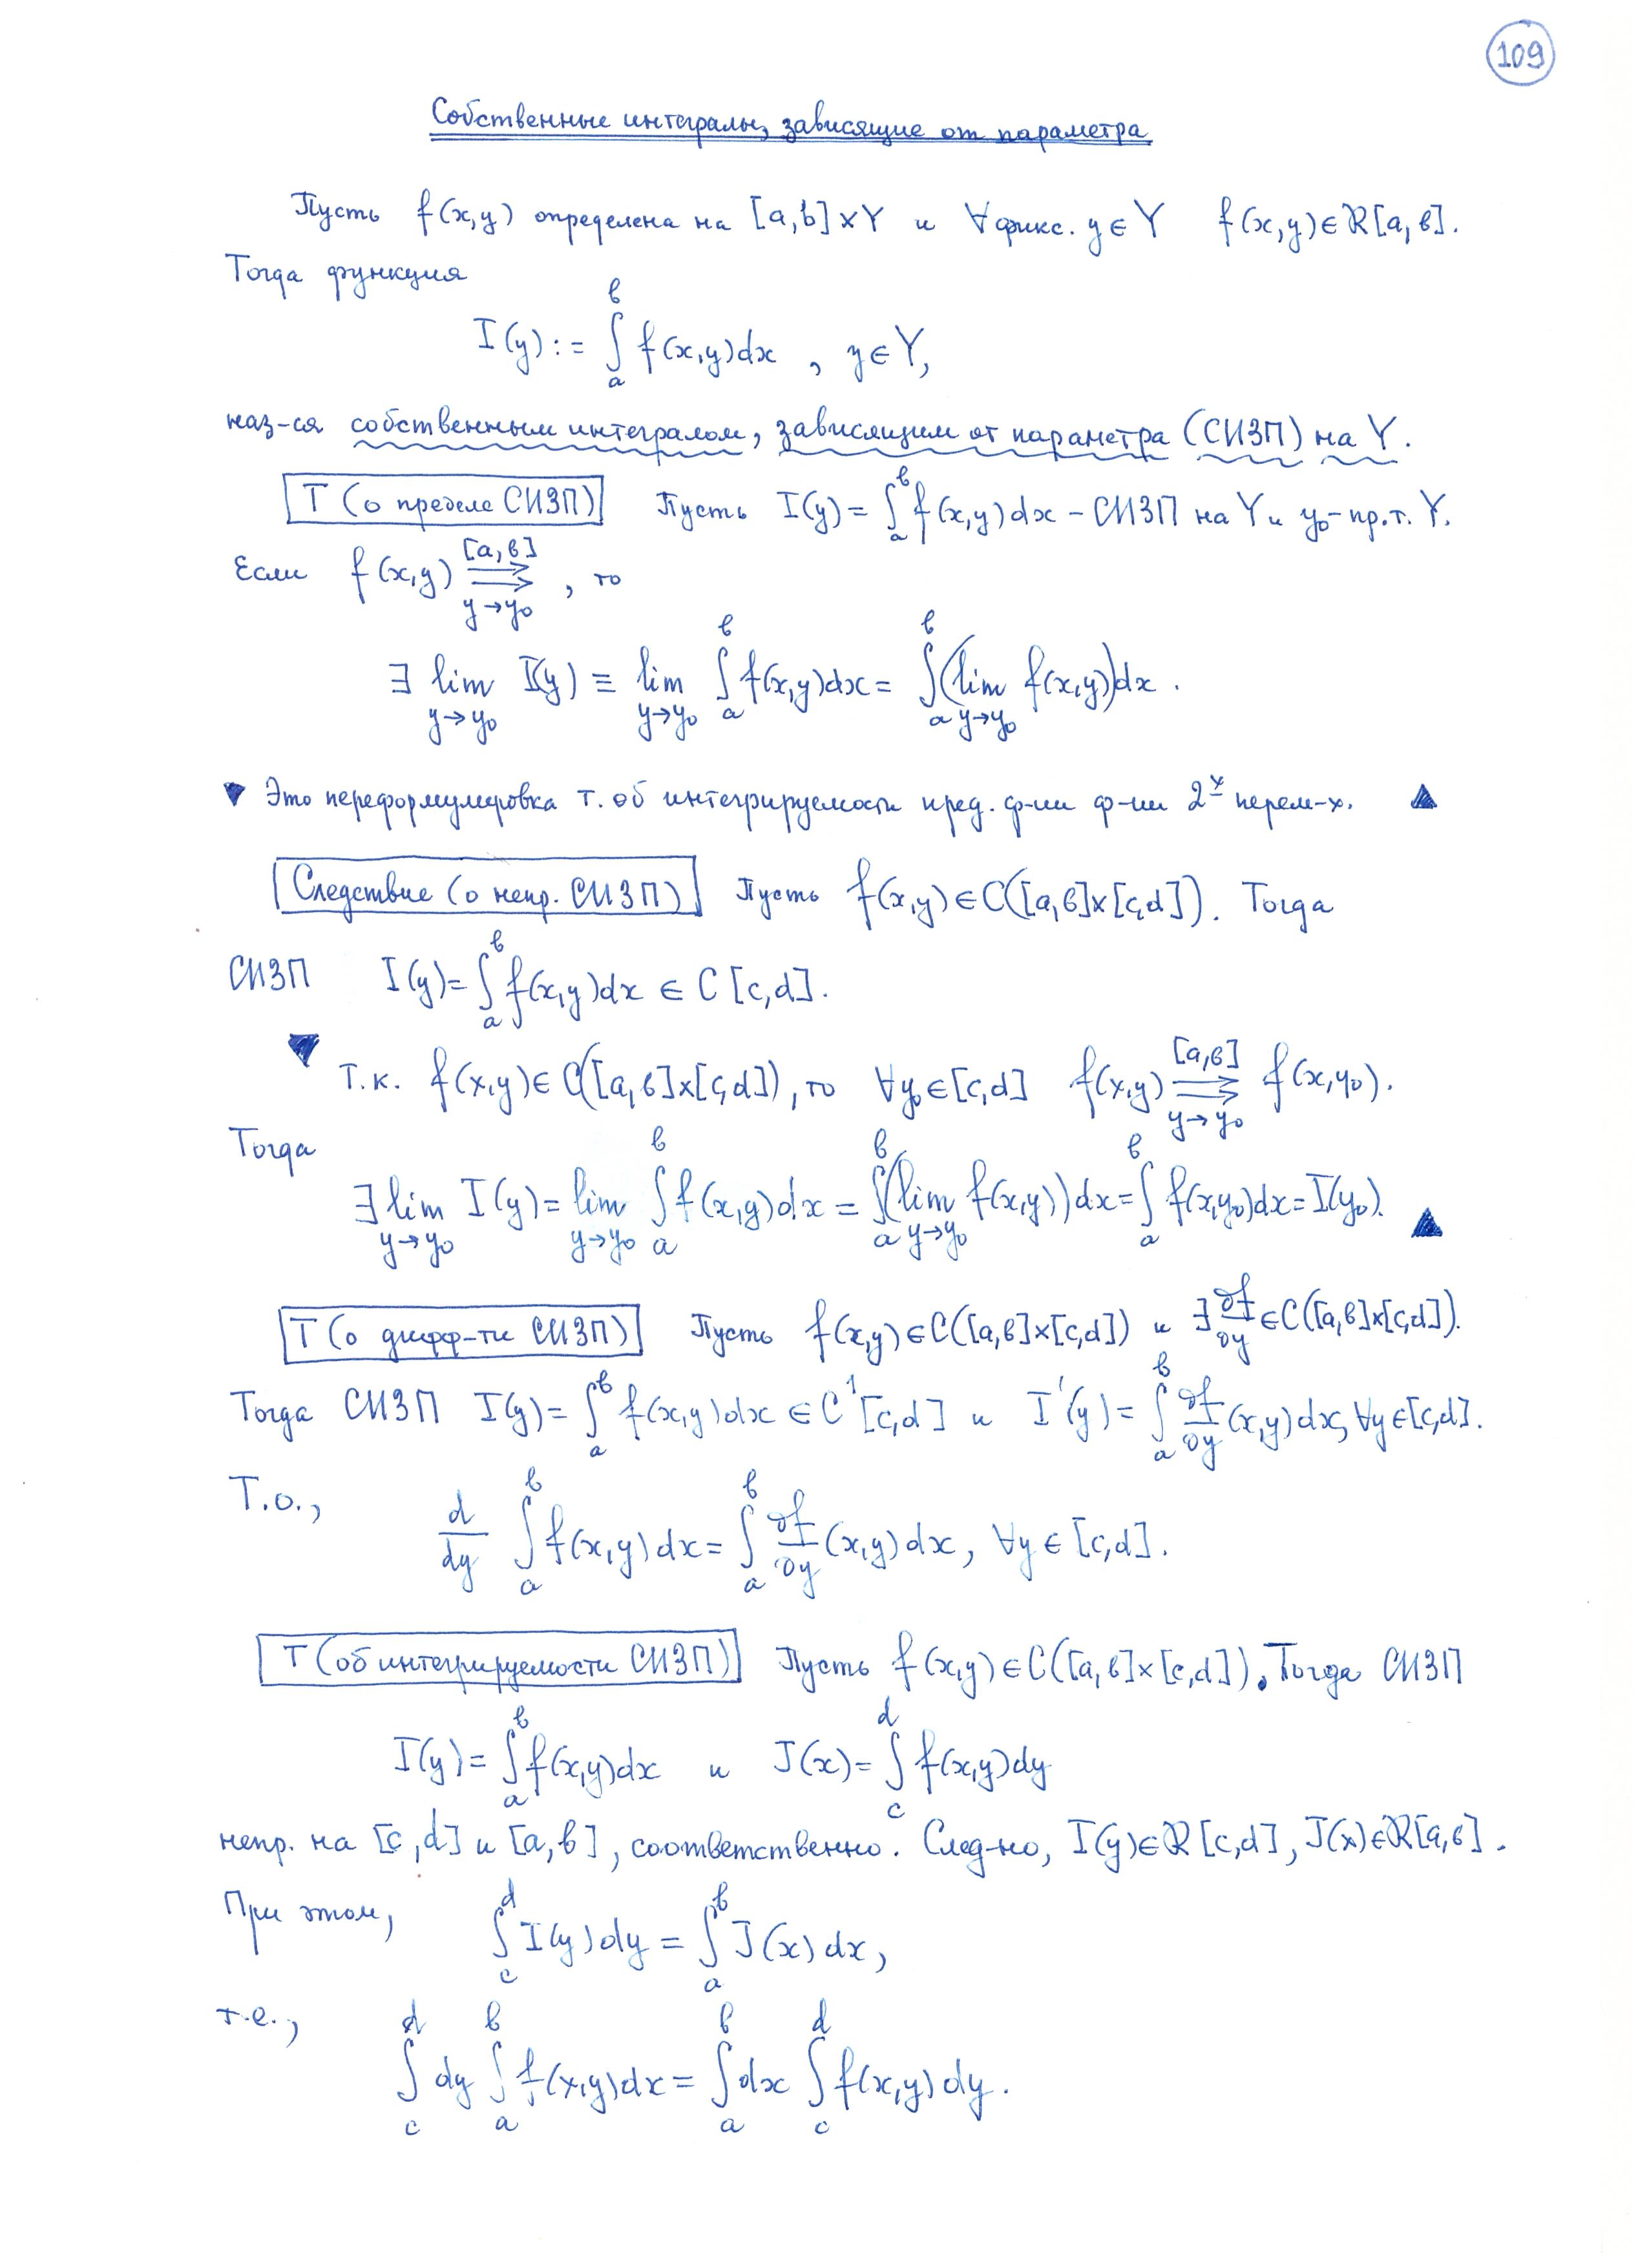 109
Собственные интегралы, зависящие от параметра
Пусть f(x,y) определена на [a,b]×Y и ∀ фикс. y∈Y f(x,y)∈R[a,b].
Тогда функция
I(y) := ∫_a^b f(x,y)dx , y∈Y,
наз-ся собственным интегралом, зависящим от параметра (СИЗП) на Y.
Т (о пределе СИЗП) Пусть I(y) = ∫_a^b f(x,y)dx – СИЗП на Y и y₀ – пр.т. Y.
Если f(x,y) ⇉^{[a,b]}_{y→y₀} , то
∃ lim_{y→y₀} I(y) ≡ lim_{y→y₀} ∫_a^b f(x,y)dx = ∫_a^b (lim_{y→y₀} f(x,y))dx .
▼ Это переформулировка т. об интегрируемости пред. ф-ии ф-ии 2ˣ перем-х. ▲
Следствие (о непр. СИЗП) Пусть f(x,y)∈C([a,b]×[c,d]). Тогда
СИЗП I(y) = ∫_a^b f(x,y)dx ∈ C[c,d].
▼ Т.к. f(x,y)∈C([a,b]×[c,d]), то ∀y₀∈[c,d] f(x,y) ⇉^{[a,b]}_{y→y₀} f(x,y₀).
Тогда
∃ lim_{y→y₀} I(y) = lim_{y→y₀} ∫_a^b f(x,y)dx = ∫_a^b (lim_{y→y₀} f(x,y))dx = ∫_a^b f(x,y₀)dx = I(y₀). ▲
Т (о дифф-ти СИЗП) Пусть f(x,y)∈C([a,b]×[c,d]) и ∃ ∂f/∂y ∈C([a,b]×[c,d]).
Тогда СИЗП I(y) = ∫_a^b f(x,y)dx ∈ C¹[c,d] и I'(y) = ∫_a^b ∂f/∂y (x,y)dx, ∀y∈[c,d].
Т.о., d/dy ∫_a^b f(x,y)dx = ∫_a^b ∂f/∂y (x,y)dx, ∀y∈[c,d].
Т (об интегрируемости СИЗП) Пусть f(x,y)∈C([a,b]×[c,d]). Тогда СИЗП
I(y) = ∫_a^b f(x,y)dx и J(x) = ∫_c^d f(x,y)dy
непр. на [c,d] и [a,b], соответственно. След-но, I(y)∈R[c,d], J(x)∈R[a,b].
При этом, ∫_c^d I(y)dy = ∫_a^b J(x)dx,
т.е.,
∫_c^d dy ∫_a^b f(x,y)dx = ∫_a^b dx ∫_c^d f(x,y)dy.